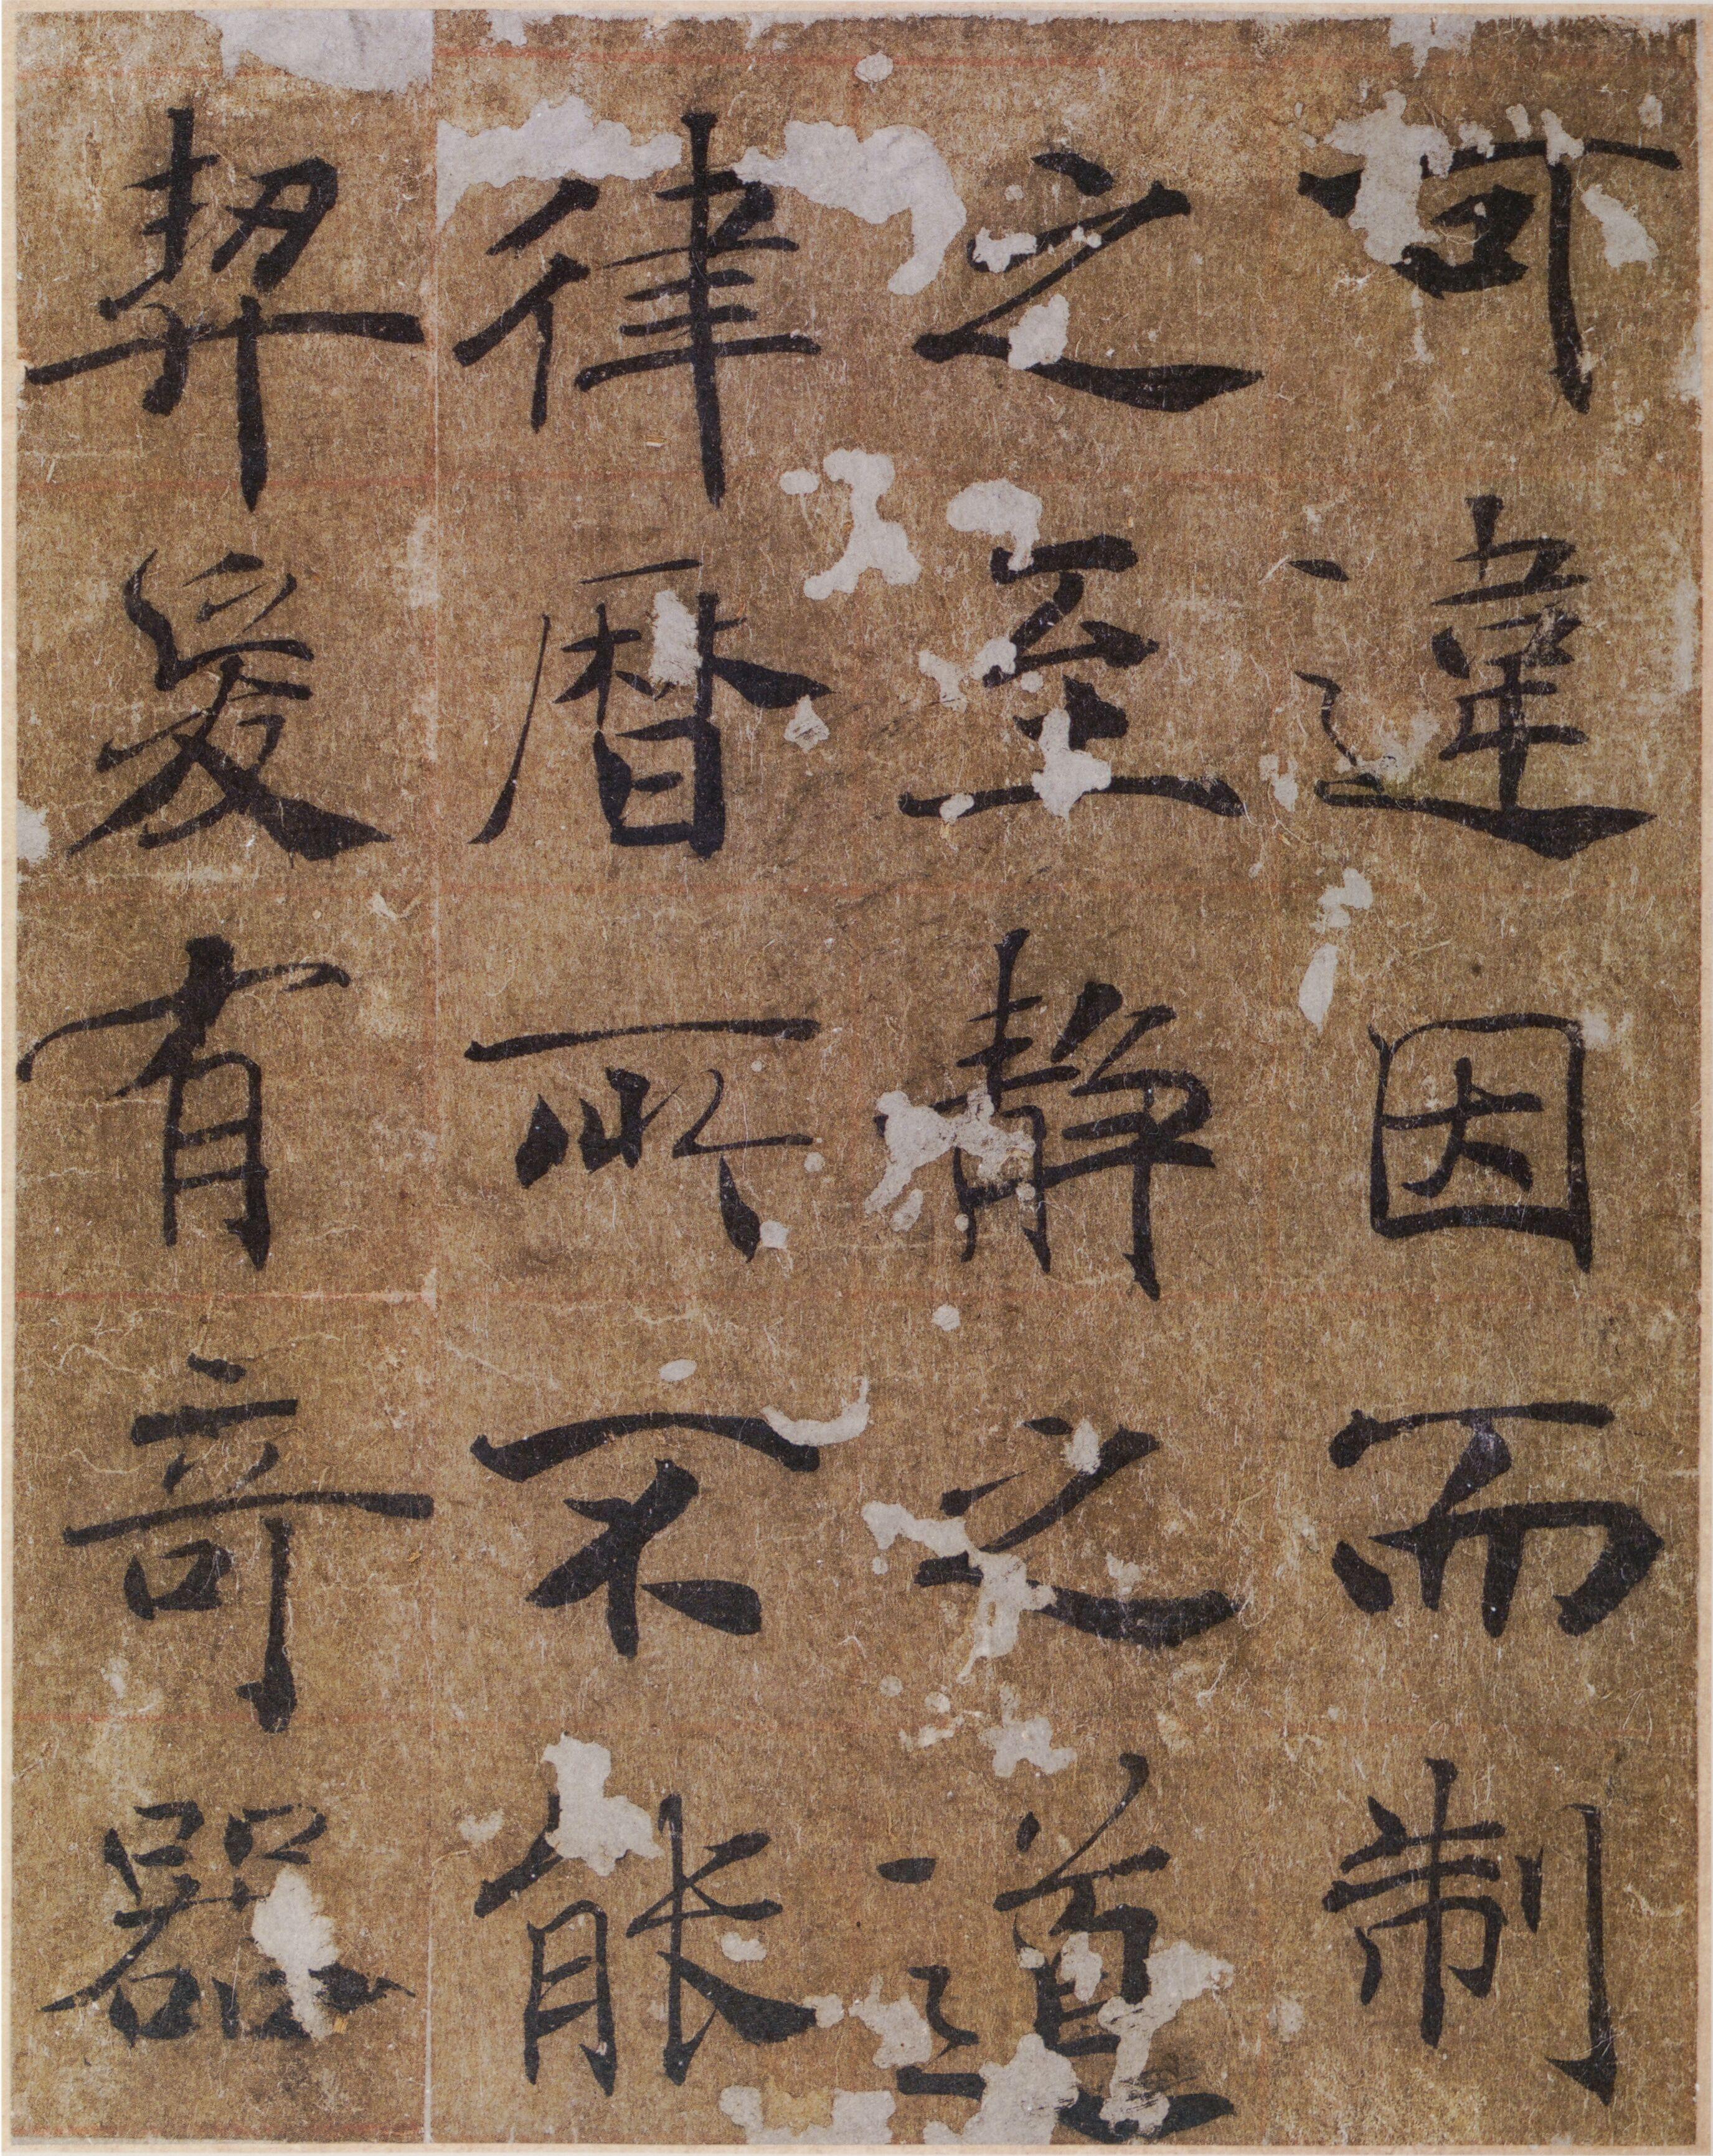 可違因而制
之至靜之道
律曆所不能
契爰有竒器